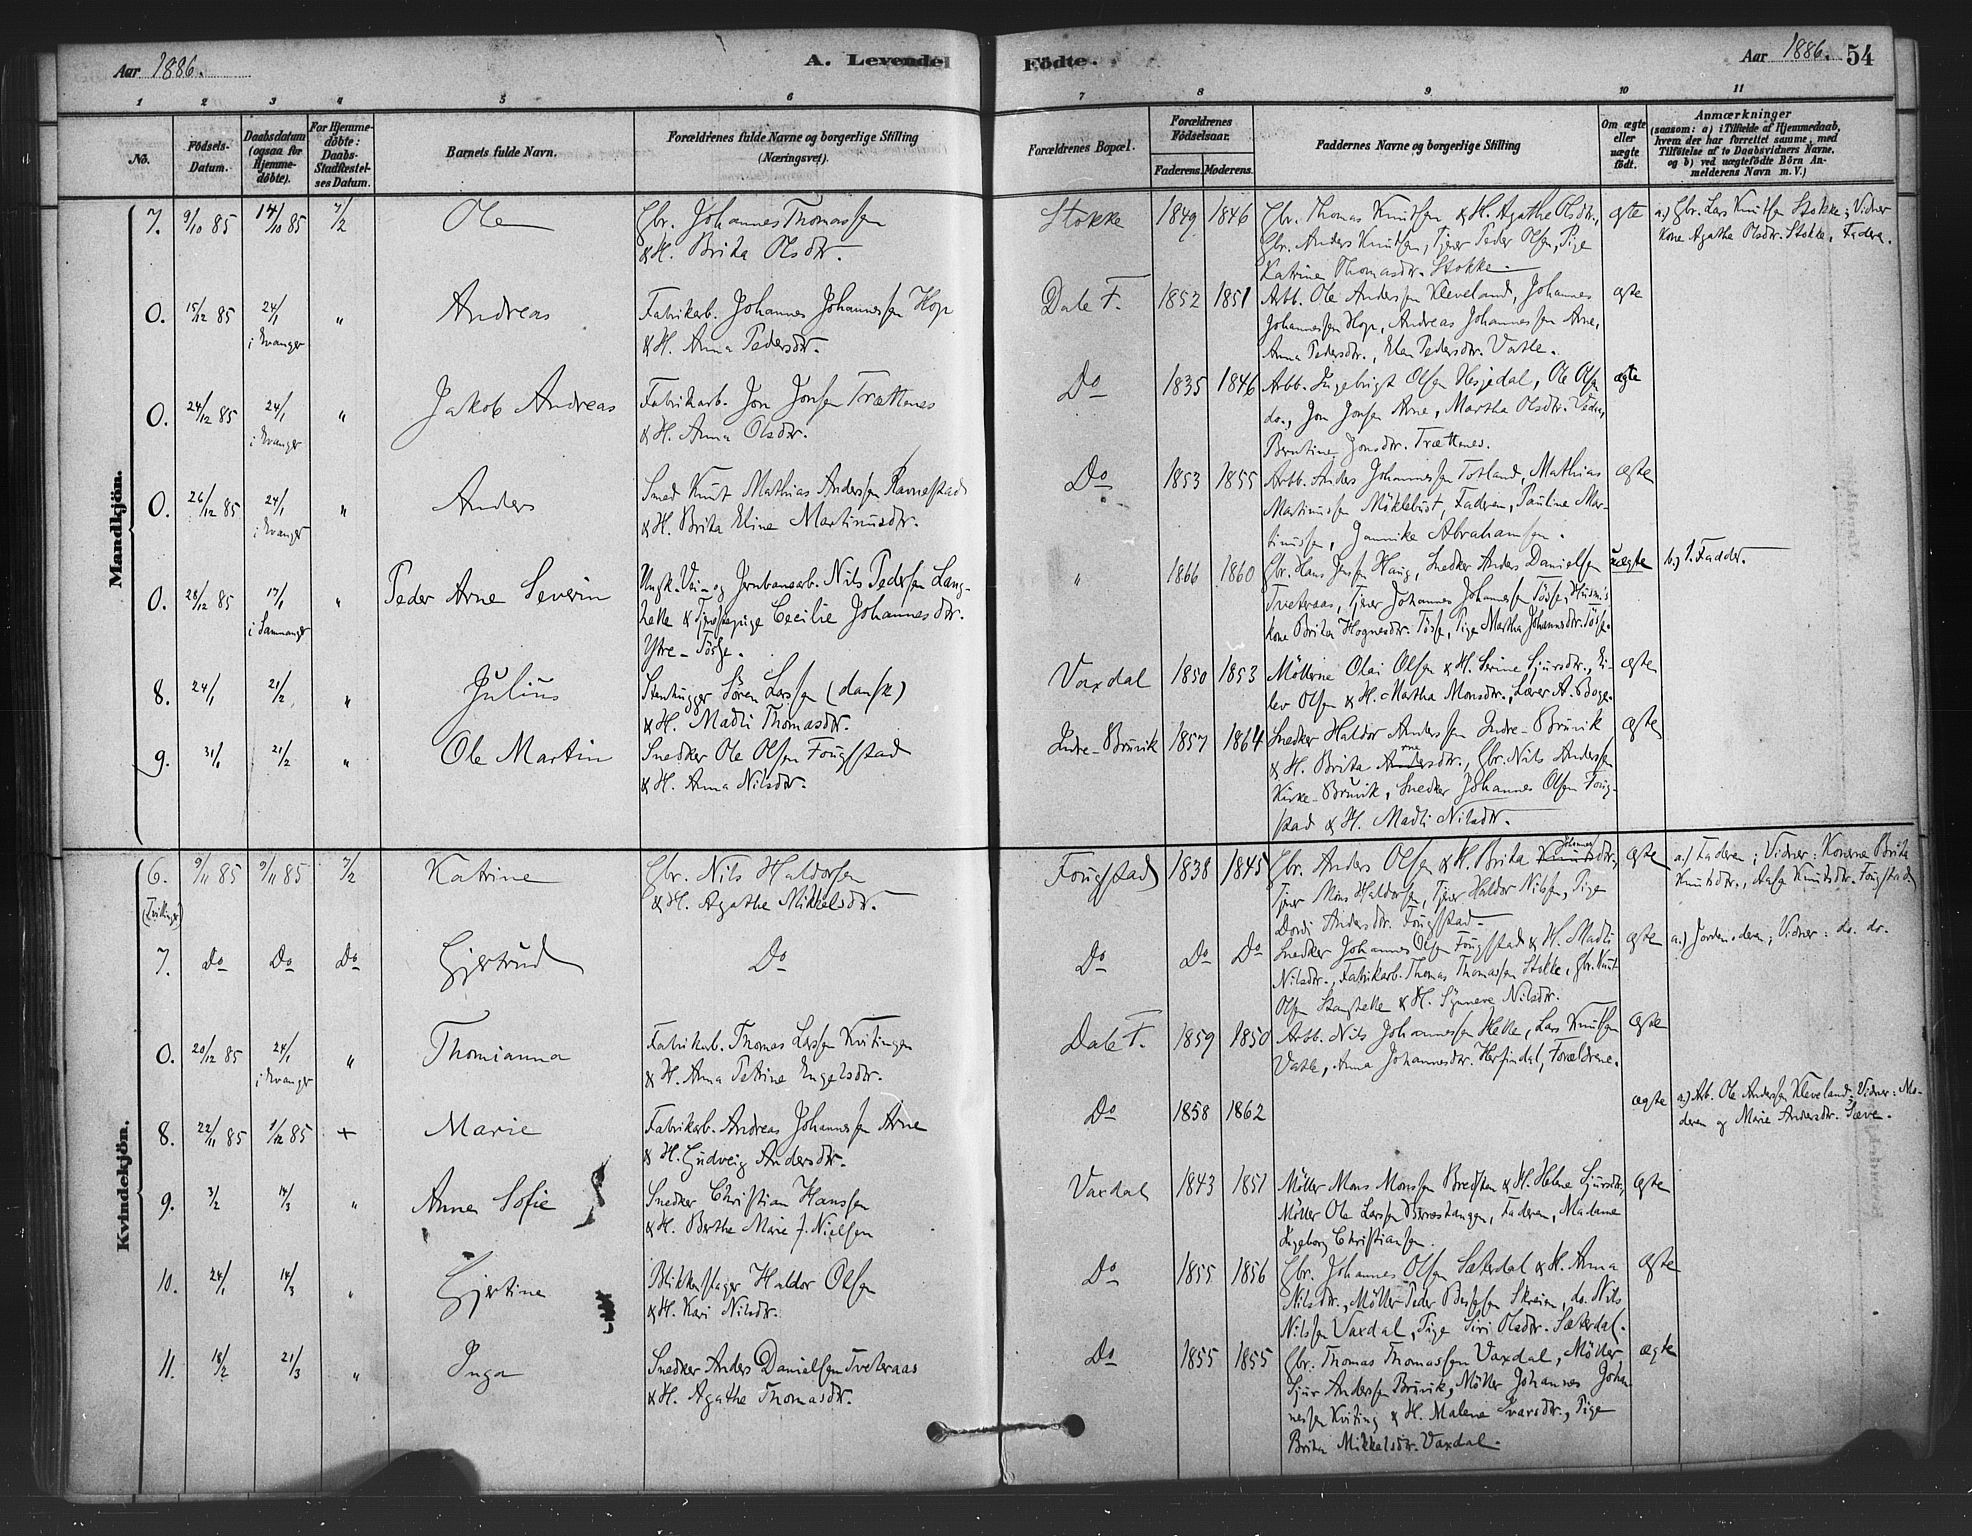 Aar 1886.
A. Levendefödte.
Aar 1886. 54
1 2 3 4 5 6 7 8 9 10 11
No.
Födsels-Datum.
Daabsdatum (ogsaa for Hjemmedöbte).
For Hjemmedöbte: Daabs-Stadfæstelses Datum.
Barnets fulde Navn.
Forældrenes fulde Navne og borgerlige Stilling (Næringsvei).
Forældrenes Bopæl.
Forældrenes Födselsaar.
Faderens. Moderens.
Faddernes Navne og borgerlige Stilling
Om ægte eller uægte födt.
Anmærkninger
(saasom: a) i Tilfælde af Hjemmedaab, hvem der har forrettet samme, med Tilföielse af to Daabsvidners Navne, og b) ved uægtefödte Börn Anmelderens Navn m. V.)
Mandkjön.
7. 9/10 85 14/10 85 7/2 Ole
Gbr. Johannes Thomassen
& H. Brita Olsdtr.
Stokke 1849 1846
Gbr. Thomas Knudsen & H. Agathe Olsdtr.,
Gbr. Anders Knutsen, Tjener Peder Olsen, Pige
Katrine Thomasdtr. Stokke
ægte
a.) Gbr. Lars Knutsen Stokke; Vidner
Kone Agathe Olsdtr. Stokke, Faderen.
0. 15/12 85 24/1 i Evanger " Andreas
Fabrikarb. Johannes Johannessen Hop
& H. Anna Pedersdtr.
Dale F. 1852 1851
Arb. Ole Andersen Kleveland, Johannes
Johannessen Hop, Andreas Johannessen Arne,
Anna Pedersdtr., Elen Pedersdtr. Vatle.
ægte
0. 24/12 85 24/1 i Evanger " Jakob Andreas
Fabrikarb. Jon Jonsen Trættenes
& H. Anna Olsdtr.
Do 1835 1846
Arb. Ingebrigt Olsen Hesjedal, Ole Olsen
do., Jon Jonsen Arne, Martha Olsdtr.
Berntine Jonsdtr. Trættenes.
ægte
0. 26/12 85 24/1 i Evanger " Anders
Smed Knut Mathias Andersen Ravnestad
& H. Brita Eline Martinusdtr.
Do 1853 1855
Arb. Anders Johannessen Totland, Mathias
Martinussen Möklebust, Faderen, Pauline Mar-
tinussen, Jannike Abrahamsen.
ægte
0. 28/12 85 17/1 i Samnanger " Peder Arne Severin
Ungk. Vei- og Jernbanearb. Nils Pedersen Lang-
helle & Tjenestepige Cecilie Johannesdtr.
Ytre-Tösse.
" 1866 1860
Gbr. Hans Jensen Haug, Snedker Anders Danielsen
Tveteraas, Tjener Johannes Johannessen Tösse, Husm.s
kone Brita Hognesdtr. Tösse, Pige Martha Johannesdtr. Tösse.
uægte
b.) 1. Fadder.
8. 24/1 21/2 " Julius
Stenhugger Sören Larsen (dansk)
& H. Madli Thomasdtr.
Vaxdal 1850 1853
Möllerne Olai Olsen & H. Serine Sjursdtr., Ei-
lev Olsen & H. Martha Monsdtr., Lærer A. Boge.
ægte
9. 31/1 21/2 " Ole Martin
Snedker Ole Olsen Fougstad
& H. Anna Nilsdtr.
Indre-Bruvik 1857 1864
Snedker Haldor Anderssen Indre-Bruvik
& H. Brita Andersdtr., Gbr. Nils Anderssen
Kirke-Bruvik, Snedker Johannes Olsen Foug-
stad & H. Madli Nilsdtr.
ægte
Kvindekjön.
6. (Tvillinger) 9/11 85 9/11 85 7/2 Katrine
Gbr. Nils Haldorsen
& H. Agathe Mikkelsdtr.
Fougstad 1838 1845
Gbr. Anders Olsen & H. Brita Knutsdtr.,
Tjener Mons Haldorsen, Tjener Haldor Nilssen, Pige
Dordi Andersdtr. Fougstad
ægte
a.) Faderen; Vidner: Konerne Brita
Knutsdtr., Aase Knutsdtr. Fougstad
7. Do Do Do Gjertrud
Do
Do Do Do
Snedker Johannes Olsen Fougstad & H. Madli
Nilsdtr., Fabrikarb. Thomas Thomassen Stokke, Gbr. Knut
Olsen & H. Synneve Nilsdtr.
ægte
a.) Jordemoderen; Vidner: do. do.
0. 20/12 85 24/1 i Evanger " Thomianna
Fabrikarb. Thomas Larsen Kvitingen
& H. Anna Petrine Engelsdtr.
Dale F. 1859 1850
Arb. Nils Johannessen Helle, Lars Knutsen
Vatle, Anna Johannesdtr. Herfindal, Forældrene.
ægte
8. 22/11 85 1/12 85 + Marie
Fabrikarb. Andreas Johannessen Arne
& H. Gudveig Andersdtr.
Do 1858 1862
ægte
a.) Arb. Ole Andersen Kleveland; Vidner: Mo-
deren og Marie Andersdtr. Sæve.
9. 3/2 14/3 " Anna Sofie
Snedker Christian Hanssen
& H. Berthe Marie f. Nielsen
Vaxdal 1843 1851
Möller Mons Monssen Bredsten & H. Helene Sjursdtr.,
Möller Ole Larssen Börrestangen, Faderen, Madame
Ingeborg Christiansen.
ægte
10. 24/1 14/3 " Gjertine
Blikkenslager Haldor Olsen
& H. Kari Nilsdtr.
Do 1855 1856
Gbr. Johannes Olsen Sæterdal & H. Anna
Nilsdtr., Möller Peder Skreien, do. Nils
Nilssen Vaxdal, Pige Siri Olsdtr. Sæterdal.
ægte
11. 18/2 21/3 " Inga
Snedker Anders Danielsen Tveteraas
& H. Agathe Thomasdtr.
Do 1855 1855
Gbr. Thomas Thomassen Vaxdal, Möller
Sjur Anderssen Bruvik, Möller Johannes Johan-
nessen Kviting & H. Malene Ivarsdtr., Pige
Brita Mikkelsdtr. Vaxdal.
ægte